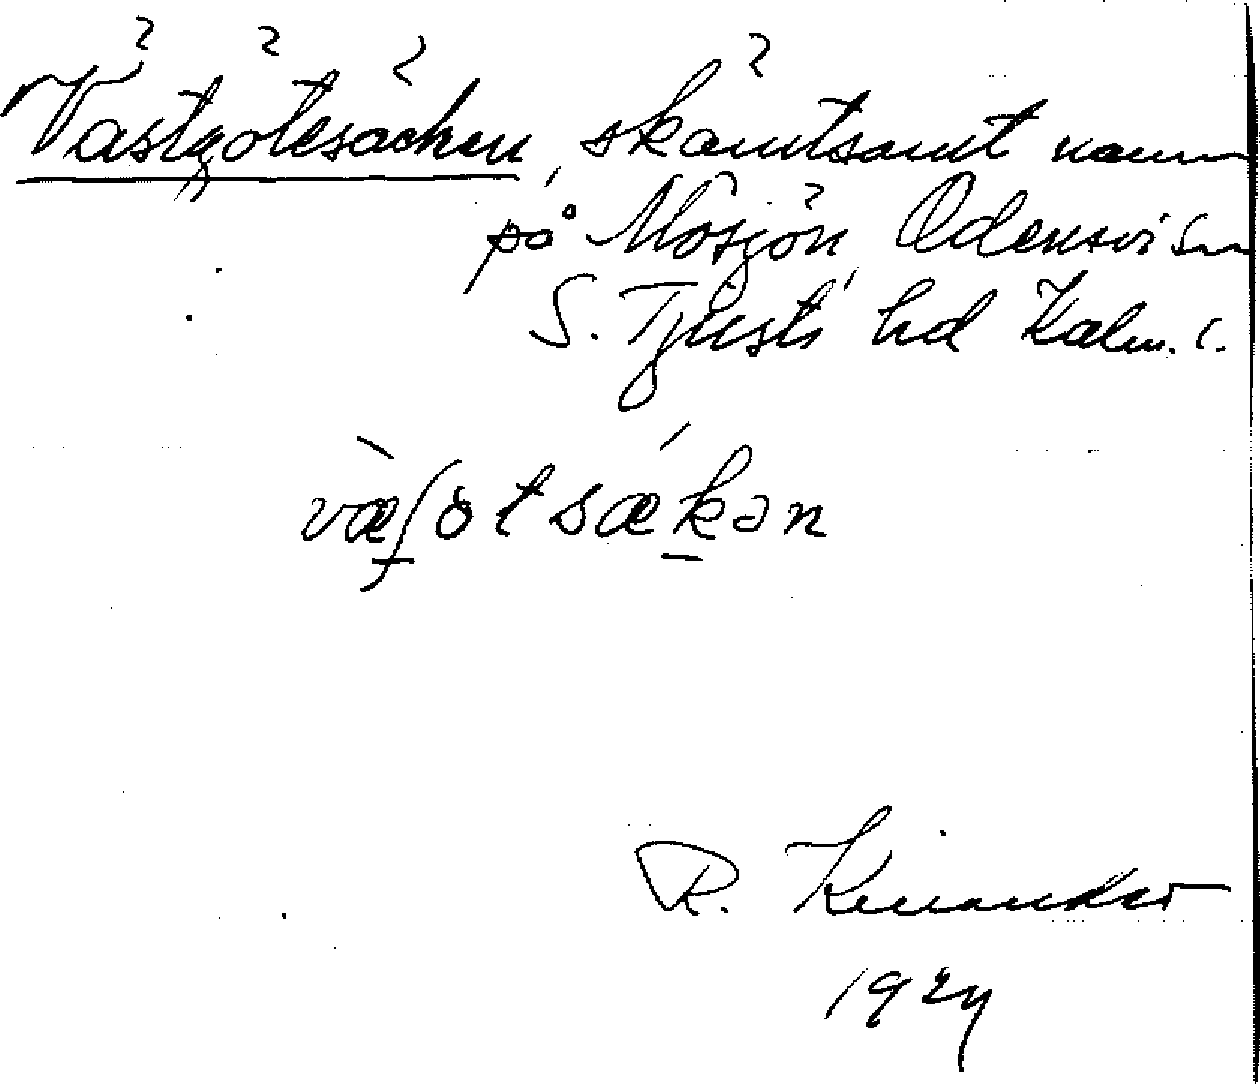 Västgötesäcken, skämtsamt namn
på Mosjön, Odensvi sn
S. Tjust hd Kalm. l.
væʃötsækən
R. Kinander
1927